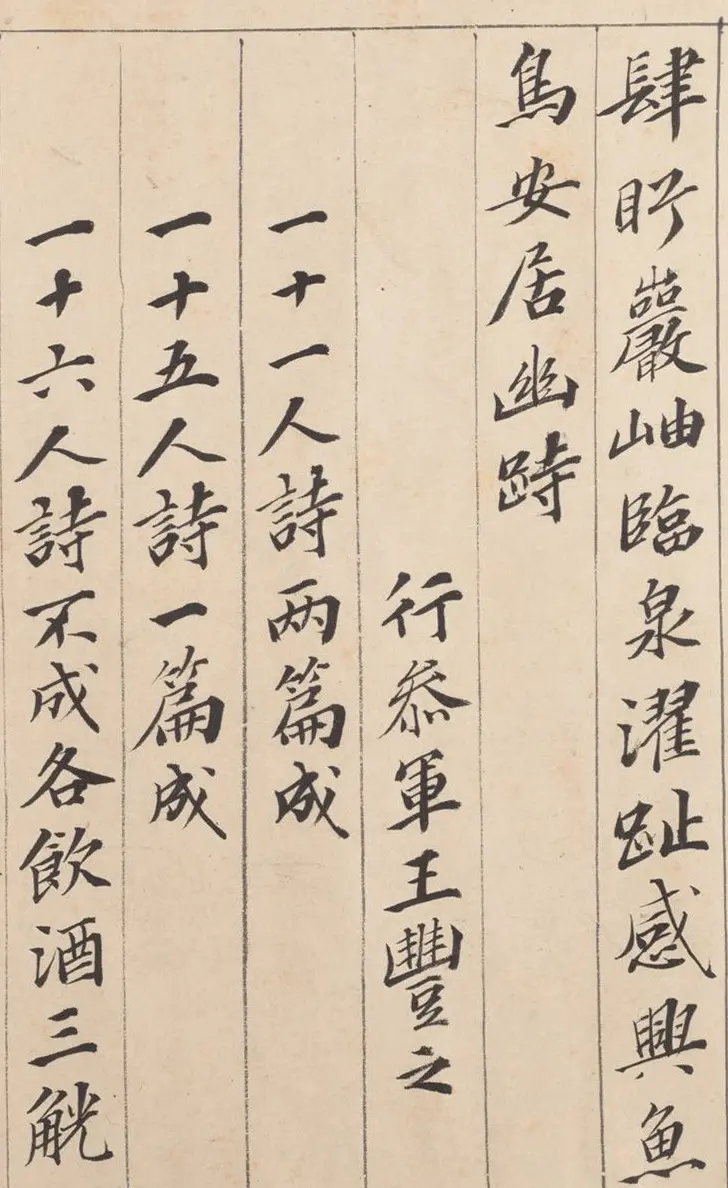 肆眄巖岫臨泉濯趾感興魚
鳥安居幽跱
行叅軍王豐之
一十一人詩两篇成
一十五人詩一篇成
一十六人詩不成各飲酒三觥